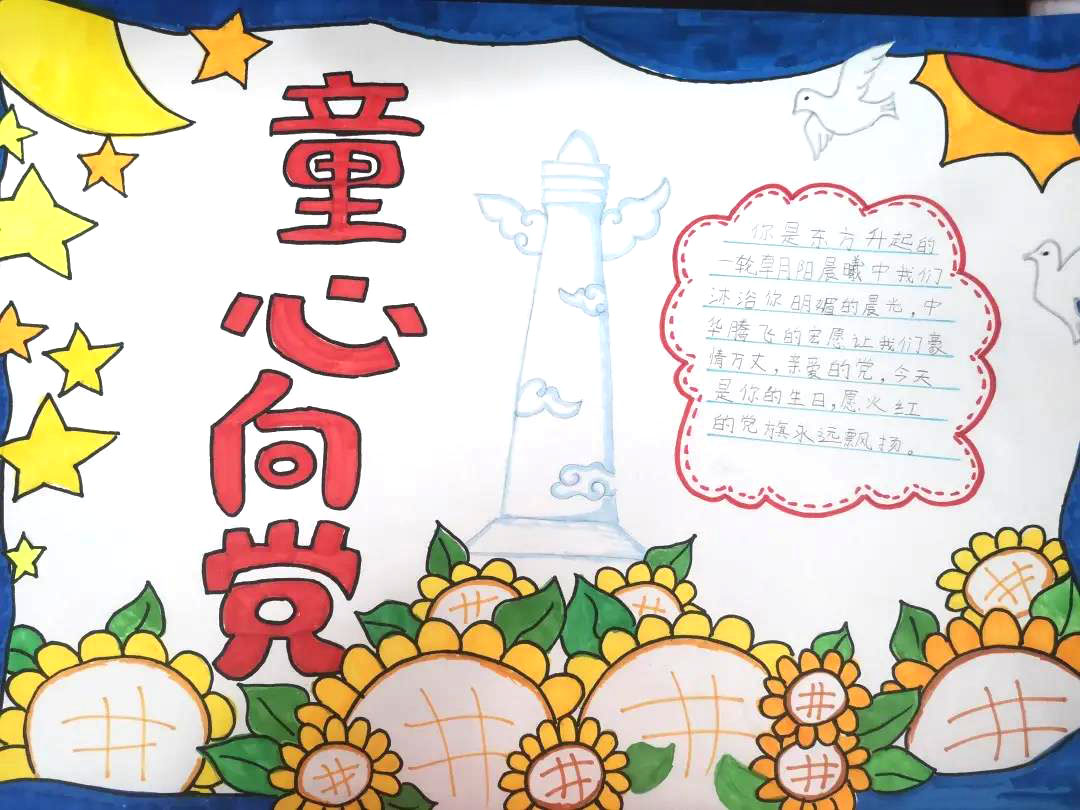 童心向党
你是东方升起的
一轮皐月阳晨曦中我们
沐浴你明媚的晨光,中
华腾飞的宏愿让我们豪
情万丈,亲爱的党,今天
是你的生日,愿火红
的党旗永远飘扬。